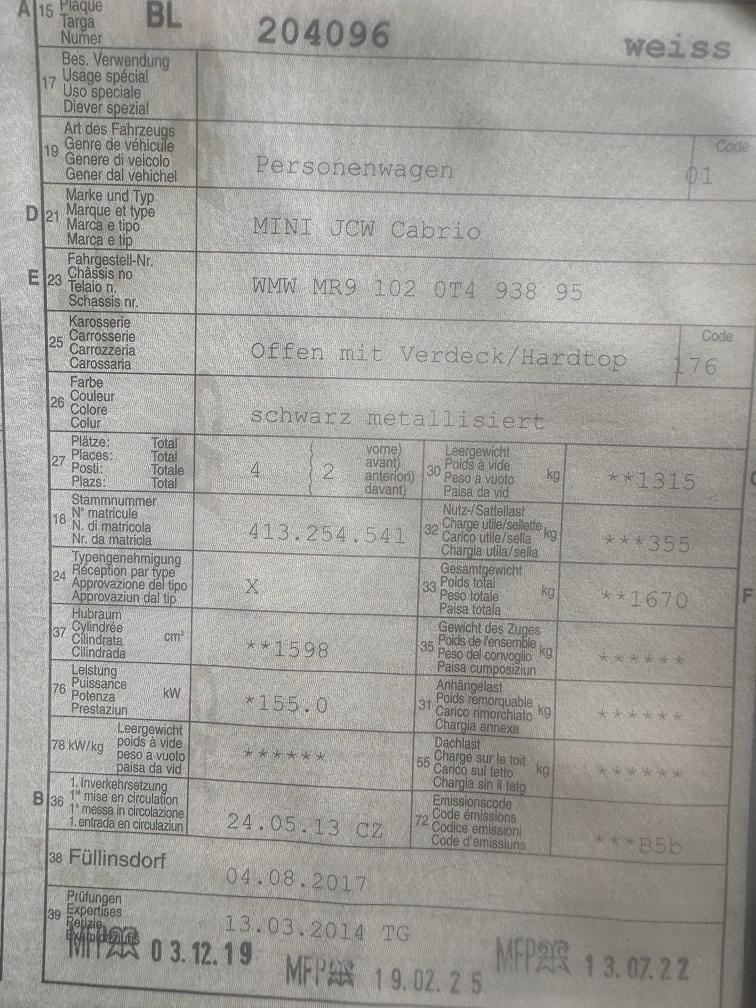 A 15 Plaque
Targa
Numer
BL 204096 weiss
17 Bes. Verwendung
Usage spécial
Uso speciale
Diever spezial
19 Art des Fahrzeugs
Genre de véhicule
Genere di veicolo
Gener dal vehichel
Personenwagen
Code
01
D 21 Marke und Typ
Marque et type
Marca e tipo
Marca e tip
MINI JCW Cabrio
E 23 Fahrgestell-Nr.
Châssis no
Telaio n.
Schassis nr.
WMW MR9 102 0T4 938 95
25 Karosserie
Carrosserie
Carrozzeria
Carossaria
Offen mit Verdeck/Hardtop
Code
176
26 Farbe
Couleur
Colore
Colur
schwarz metallisiert
27 Plätze: Total
Places: Total
Posti: Totale
Plazs: Total
4
2
vorne)
avant)
anteriori)
davant)
30 Leergewicht
Poids à vide
Peso a vuoto
Paisa da vid
kg
**1315
18 Stammnummer
N° matricule
N. di matricola
Nr. da matricla
413.254.541
32 Nutz-/Sattellast
Charge utile/sellette
Carico utile/sella
Chargia utila/sella
kg
***355
24 Typengenehmigung
Réception par type
Approvazione del tipo
Approvaziun dal tip
X
33 Gesamtgewicht
Poids total
Peso totale
Paisa totala
kg
**1670
F
37 Hubraum
Cylindrée
Cilindrata
Cilindrada
cm³
**1598
35 Gewicht des Zuges
Poids de l'ensemble
Peso del convoglio
Paisa cumposiziun
kg
******
76 Leistung
Puissance
Potenza
Prestaziun
kW
*155.0
31 Anhängelast
Poids remorquable
Carico rimorchiato
Chargia annexa
kg
******
78 kW/kg
Leergewicht
poids à vide
peso a vuoto
paisa da vid
******
55 Dachlast
Charge sur le toit
Carico sul tetto
Chargia sin il tetg
kg
******
B 36 1. Inverkehrsetzung
1re mise en circulation
1a messa in circolazione
1. entrada en circulaziun
24.05.13 CZ
72 Emissionscode
Code émissions
Codice emissioni
Code d'emissiuns
***B5b
38 Füllinsdorf
04.08.2017
39 Prüfungen
Expertises
13.03.2014 TG
MFP 03.12.19
MFP 19.02.25
MFP 13.07.22